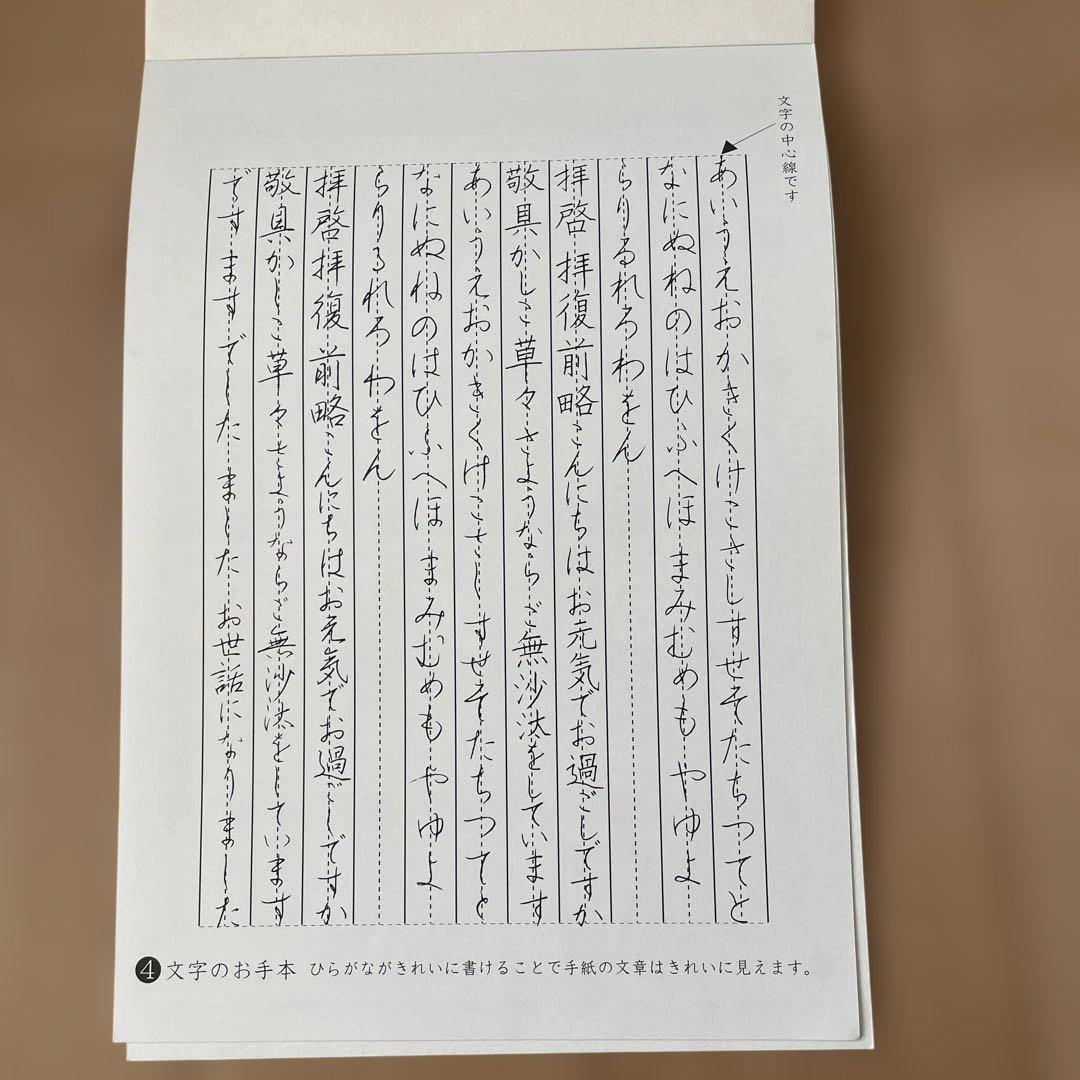 文字の中心線です
あいうえおかきくけこさしすせそたちつてと
なにぬねのはひふへほまみむめもやゆよ
らりるれろわをん
拝啓拝復前略こんにちはお元気でお過ごしですか
敬具かしこ草々さようならご無沙汰をしています
あいうえおかきくけこさしすせそたちつてと
なにぬねのはひふへほまみむめもやゆよ
らりるれろわをん
拝啓拝復前略こんにちはお元気でお過ごしですか
敬具かしこ草々さようならご無沙汰をしています
ですますでしたましたお世話になりました
4 文字のお手本 ひらがながきれいに書けることで手紙の文章はきれいに見えます。